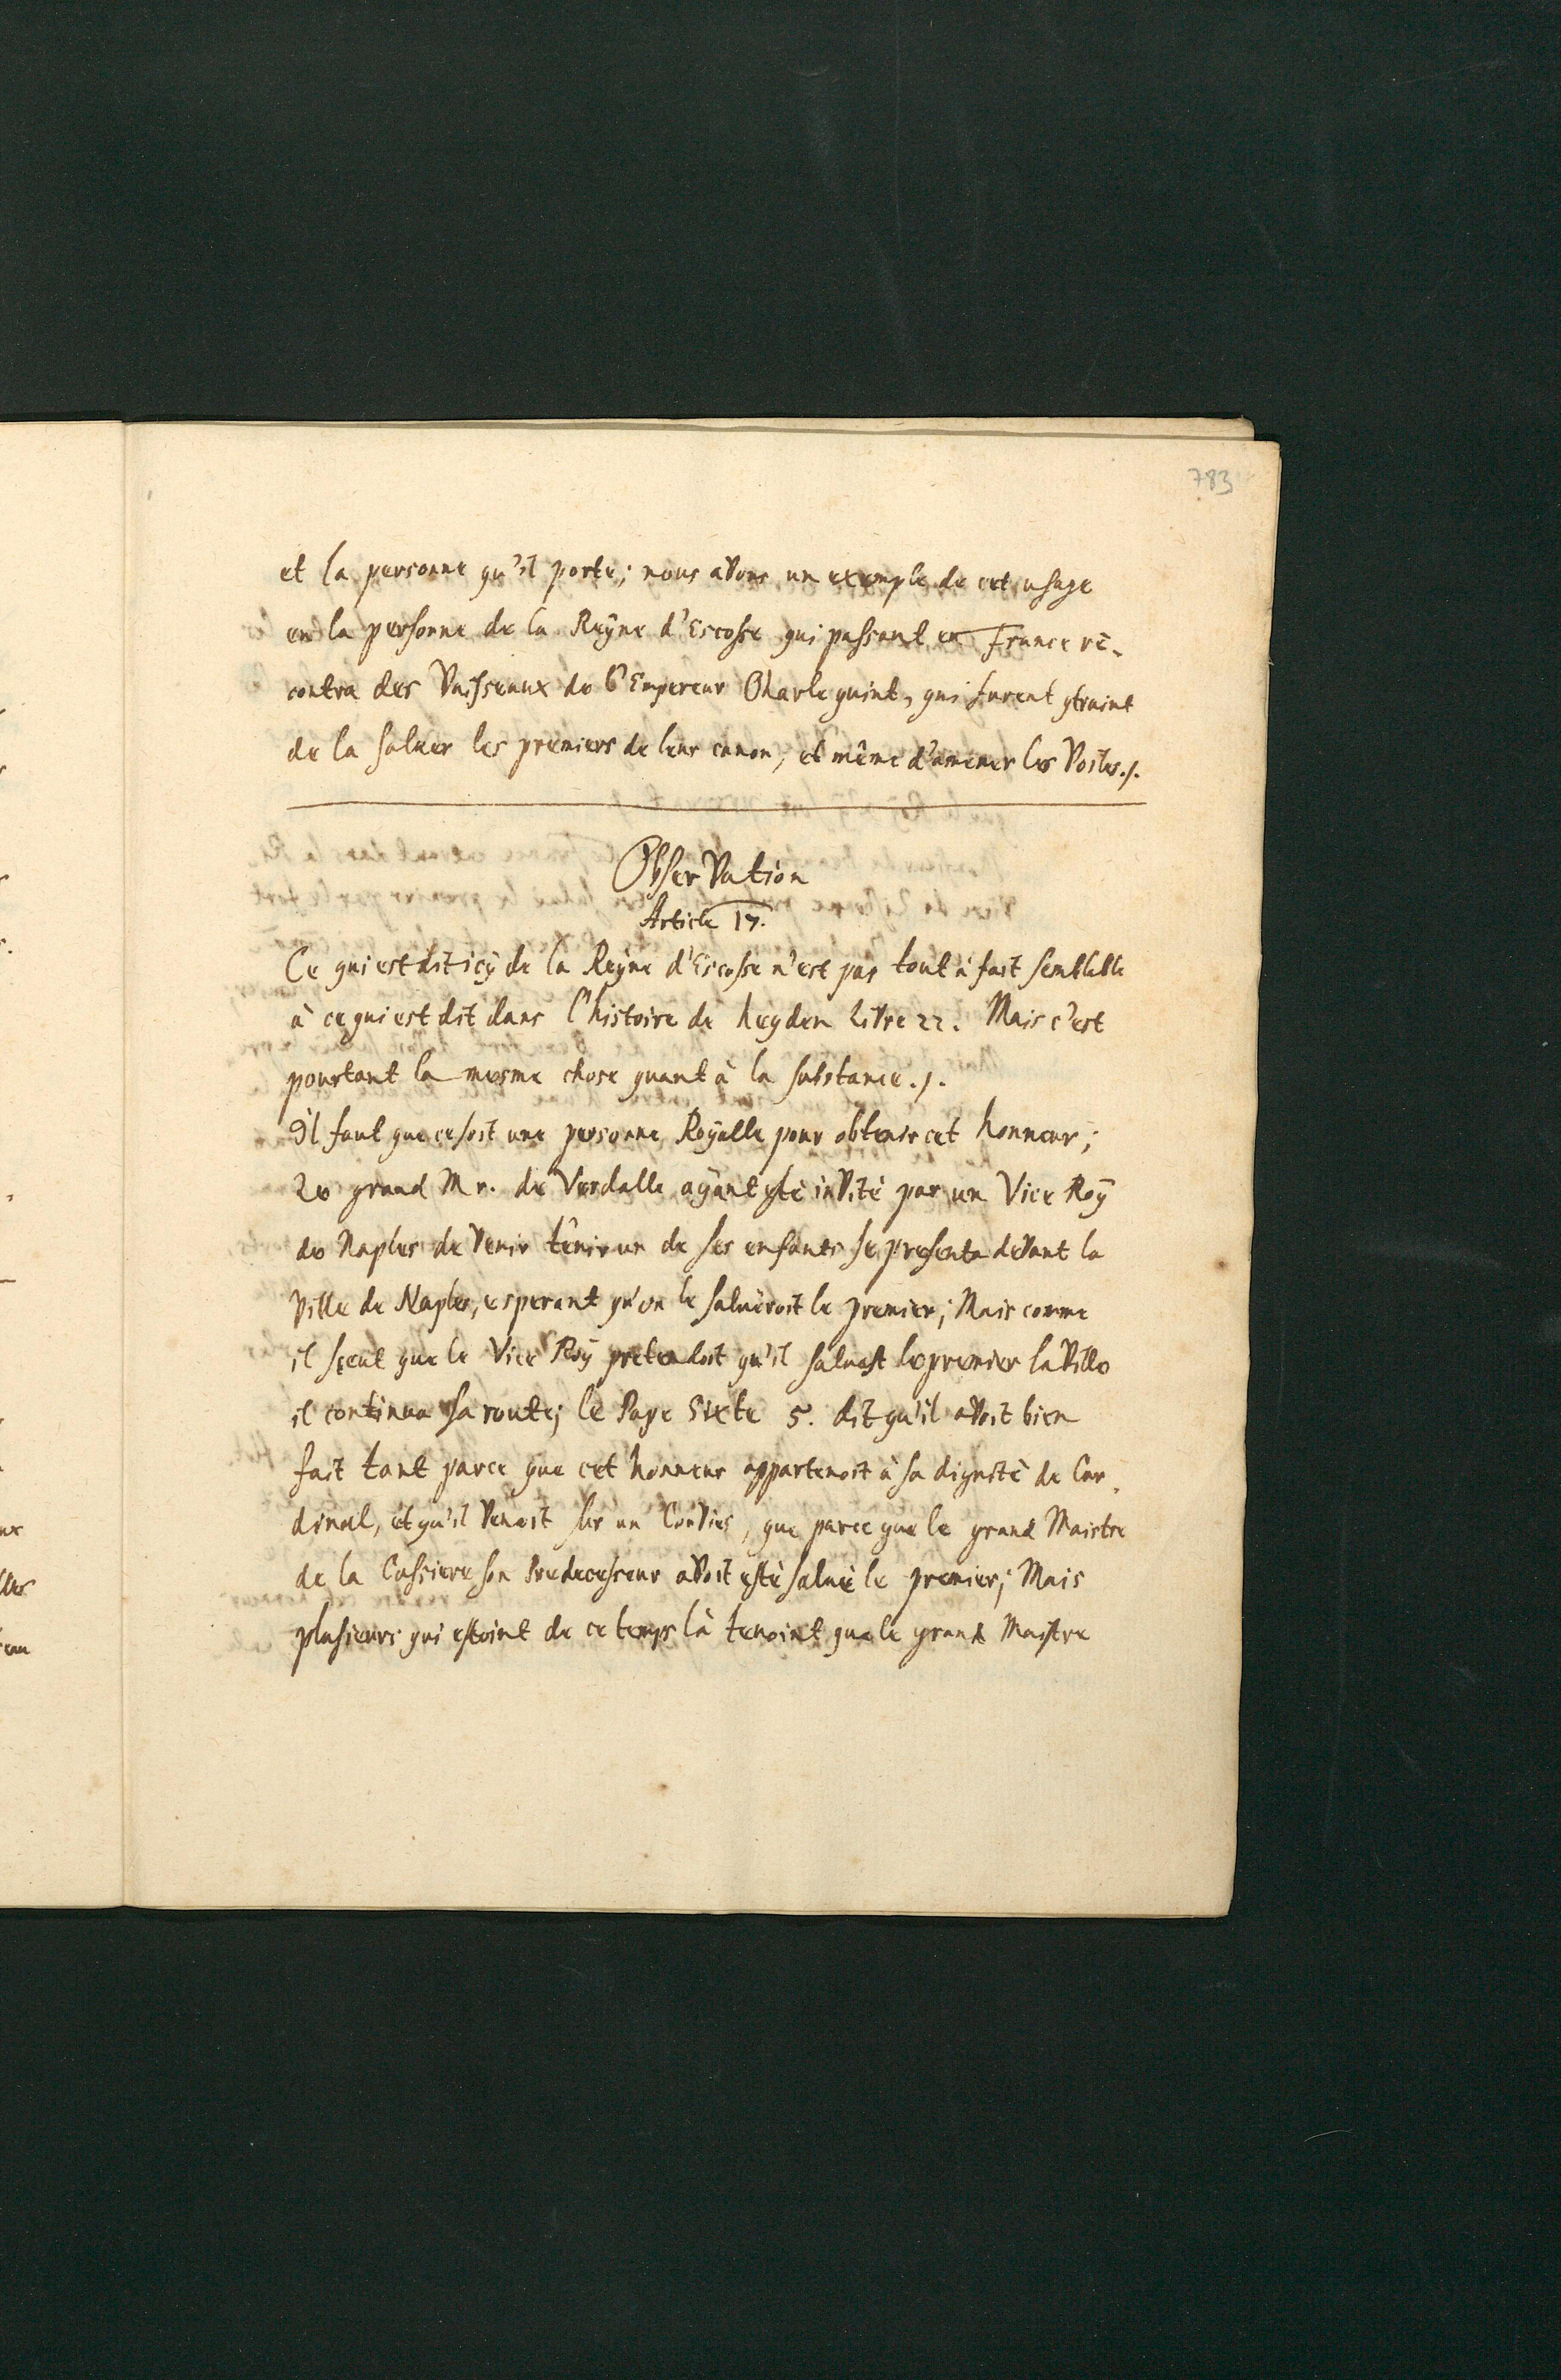 783
et la personne qu'il porte; nous avons un exemple de cet usage
en la personne de la Reÿne d'Escosse qui passant en France rē-
contra des Vaisseaux de l'Empereur Charle quint, qui furent
de la saluer les premiers de leur canon, et même d'amener les Voiles./.
Observation
Article 17.
Ce qui est dit icÿ de la Reÿne d'Escosse n'est pas tout à fait semblable
à ce qui est dit dans l'histoire de heyden Livre 22. Mais c'est
pourtant la mesme chose quant à la substance./.
Il faut que ce soit une personne Roÿalle pour obtenir cet honneur;
Le grand Mr. de Verdalle aÿant esté invité par un Vice Roÿ
de Naples de venir tenir un de ses enfants se presenta devant la
Ville de Naples, esperant qu'on le salüeroit le premier; Mais comme
il sçeut que le Vice Roÿ pretendoit qu'il saluast le premier la Ville
il continua sa route; le Pape Sixte 5. dit qu'il avoit bien
fait tant parce que cet honneur appartenoit à sa dignité de Car-
dinal, et qu'il venoit sur un , que parce que le grand Maistre
de la Cassiere son Predecesseur avoit esté salué le premier; Mais
plusieurs qui estoint de ce temps là tenoint que le grand Maistre